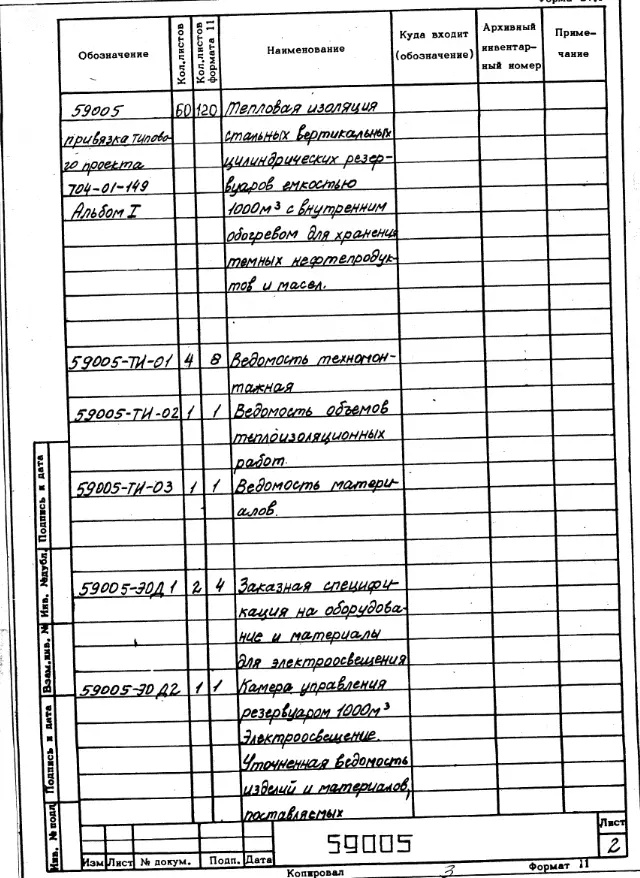 Обозначение Кол.листов Кол.листов формата 11 Наименование Куда входит (обозначение) Архивный инвентар- ный номер Приме- чание
59005 60 120 Тепловая изоляция
привязка типово- стальных вертикальных
го проекта цилиндрических резер-
704-01-149 вуаров емкостью
Альбом I 1000м³ с внутренним
обогревом для хранения
темных нефтепродук-
тов и масел.
59005-ТИ-01 4 8 Ведомость техномон-
тажная
59005-ТИ-02 1 1 Ведомость объемов
теплоизоляционных
работ.
59005-ТИ-03 1 1 Ведомость матери-
алов.
59005-ЭОД1 2 4 Заказная специфи-
кация на оборудова-
ние и материалы
для электроосвещения
59005-ЭОД2 1 1 Камера управления
резервуаром 1000м³
Электроосвещение.
Уточненная ведомость
изделий и материалов,
поставляемых
Инв. № подл Подпись и дата Взам.инв. № Инв. №дубл. Подпись и дата
59005
Лист
2
Изм Лист № докум. Подп. Дата
Копировал 3 Формат 11